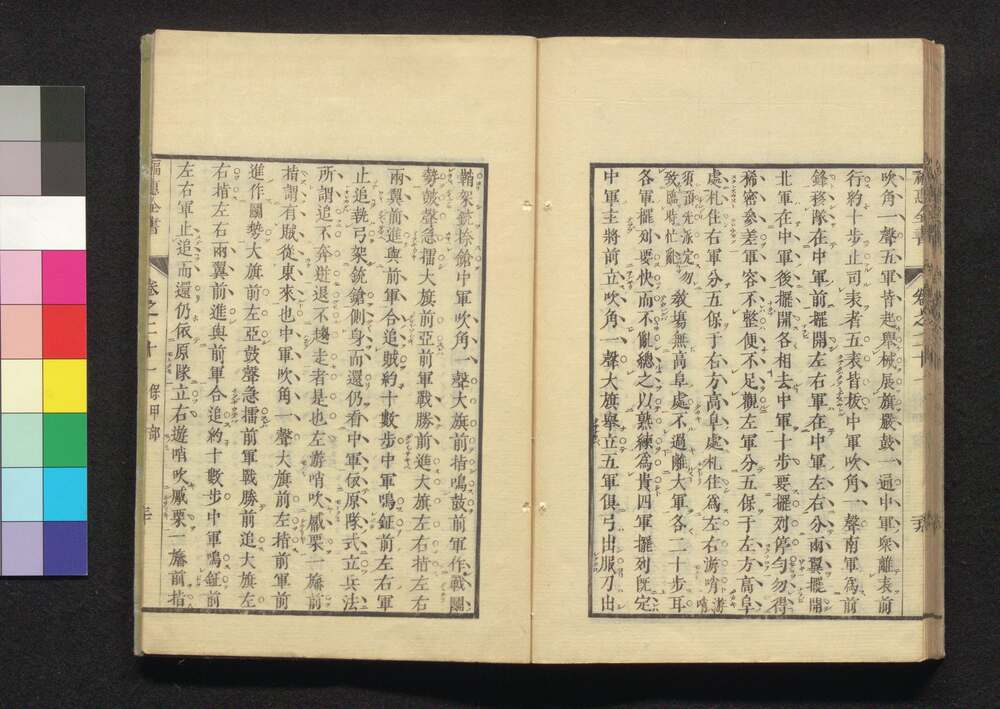 吹角一聲五軍皆起擧械展旗嚴鼓一通中軍衆離表前
行約十步止司表者五表皆拔中軍吹角一聲南軍為前
鋒移隊在中軍前擺開左右軍在中軍左右分兩翼擺開
北軍在中軍後擺開各相去中軍十步要擺列停勻勿得
稀密參差軍容不整便不足觀左軍分五保于左方高阜
處札住右軍分五保于右方高阜處札住為左右游哨游哨
須預先派定勿
致臨時忙亂
教塲無高阜處不過離大軍各二十步耳
各軍擺列要快而不亂總之以熟練為貴四軍擺列既定
中軍主將前立吹角一聲大旗擧立五軍俱弓出服刀出
鞘架銃捻鎗中軍吹角一聲大旗前揞鳴鼓前軍作戰鬬
勢鼓聲急擂大旗前亞前軍戰勝前進大旗左右揞左右
兩翼前進與前軍合追賊約十數步中軍鳴鉦前左右軍
止追執弓架銃鎗側身而還仍看中軍依原隊式立兵法
所謂追不奔逬退不趨走者是也左游哨吹觱栗一旛前
揞謂有賊從東來也中軍吹角一聲大旗前左揞前軍前
進作鬬勢大旗前左亞鼓聲急擂前軍戰勝前追大旗左
右揞左右兩翼前進與前軍合追約十數步中軍鳴鉦前
左右軍止追而還仍依原隊立右遊哨吹觱栗一旛前揞
福惠全書
卷之二十一
保甲部